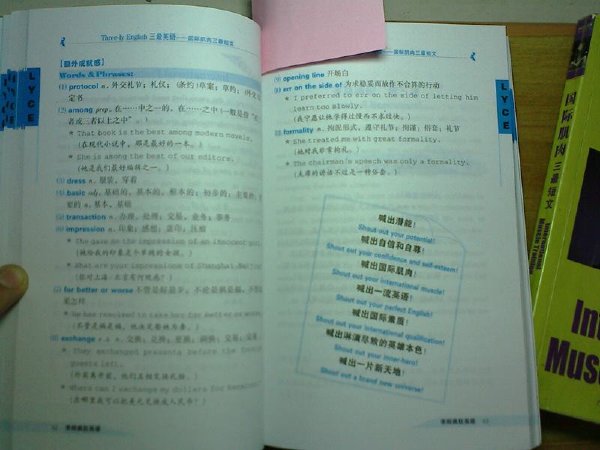 Three-ly English 三最英语——国际肌肉三最短文
【额外成就感】
Words & Phrases:
(1) protocol n. 外交礼节；礼仪；(条约)草案；草约；(外交)
定书
(2) among prep. 在……中之一的，在……之中(一般是指“三
者或三者以上之中”
★ That book is the best among modern novels.
(在现代小说中，那是最好的一本。)
★ She is among the best of our editors.
(他是我们最好编辑之一。)
(3) dress n. 服装，穿着
(4) basic adj. 基础的，基本的，根本的；初步的；主要的
n. 基本，基础
(5) transaction n. 办理，处理；交易，业务；事务
(6) impression n. 印象；感想；盖印；压痕
★ She gave me the impression of an innocent
(她给我的印象是个单纯的女孩。)
★ What are your impressions of Shanghai
(你对上海
(7) for better or worse 不管是好是歹，不论是祸是福，不
果怎样
★ He has resolved to take her for better or worse
(不管是祸是福，他决定娶她为妻。)
(8) exchange v. & n. 交换；兑换；
★ They exchanged presents before the
guests left.
(外宾离开前，他们互相交换礼物。)
★ Where can I exchange my dollars for
(在哪里我可以把美元兑换成人民币？)
李阳疯狂英语
LYCE
——国际肌肉三最短文
(9) opening line 开场白
err on the side of 为求稳妥而放作不合算的行动
★ I preferred to err on the side of letting him
learn too slowly.
(我宁愿让他学得过慢而不求过快。)
formality n. 拘泥形式，遵守礼节；拘谨；俗套；礼节
★ She treated me with great formality.
(她对我非常拘礼。)
★ The chairman's speech was only a formality.
(主席的讲话不过是一种俗套。)
喊出潜能！
Shout out your potential!
喊出自信和自尊！
Shout out your confidence and self-esteem!
喊出国际肌肉！
Shout out your international muscle!
喊出一流英语！
Shout out your perfect English!
喊出国际素质！
Shout out your international qualification!
喊出淋漓尽致的英雄本色！
Shout out your inner-hero!
喊出一片新天地！
Shout out a brand new universe!
李阳疯狂英语
LYCE
国际肌肉三最短文
International
Muscle
Int
Musc